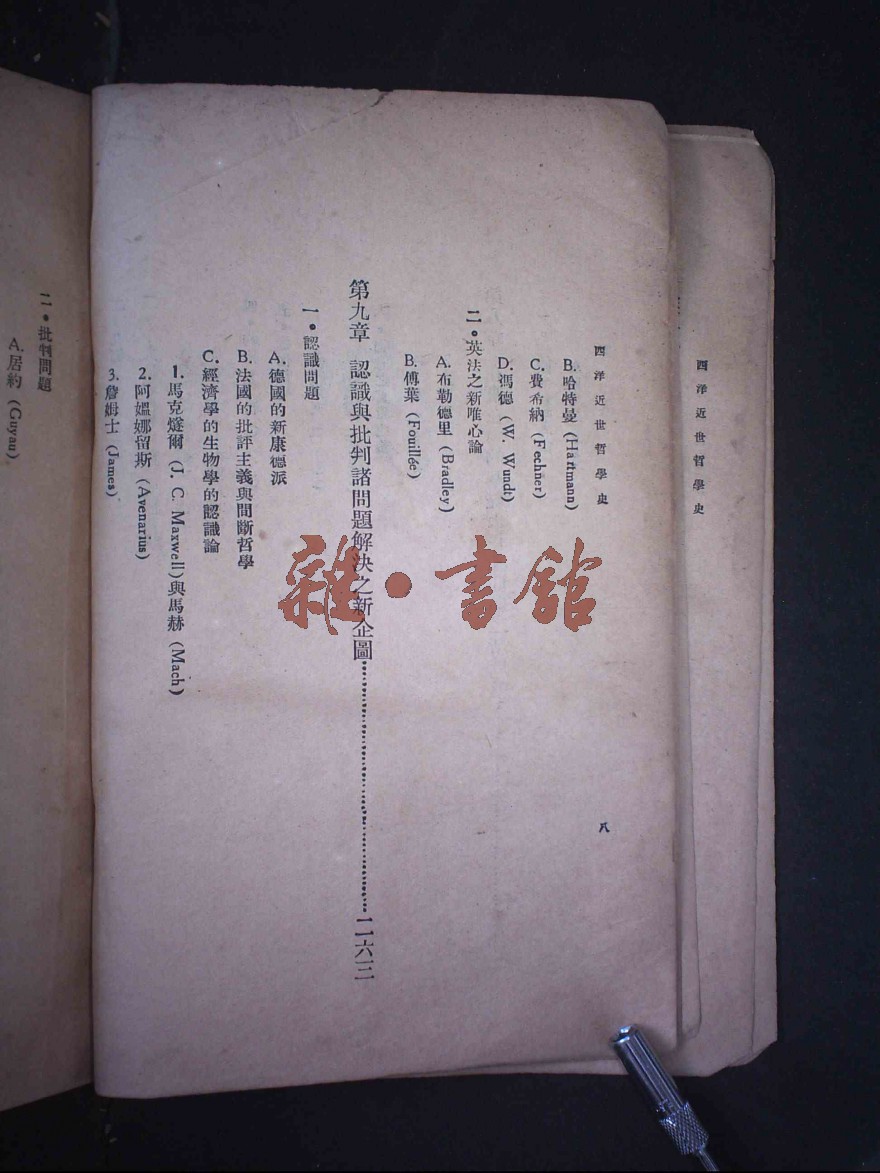 西洋近世哲學史
西洋近世哲學史 八
B. 哈特曼 (Hartmann)
C. 費希納 (Fechner)
D. 馮德 (W. Wundt)
二・英法之新唯心論
A. 布勒德里 (Bradley)
B. 傅葉 (Fouillée)
第九章 認識與批判諸問題解決之新企圖……………………二六三
一・認識問題
A. 德國的新康德派
B. 法國的批評主義與間斷哲學
C. 經濟學的生物學的認識論
1. 馬克燧爾 (J. C. Maxwell) 與馬赫 (Mach)
2. 阿媼娜留斯 (Avenarius)
3. 詹姆士 (James)
二・批判問題
A. 居約 (Guyau)
雜・書館